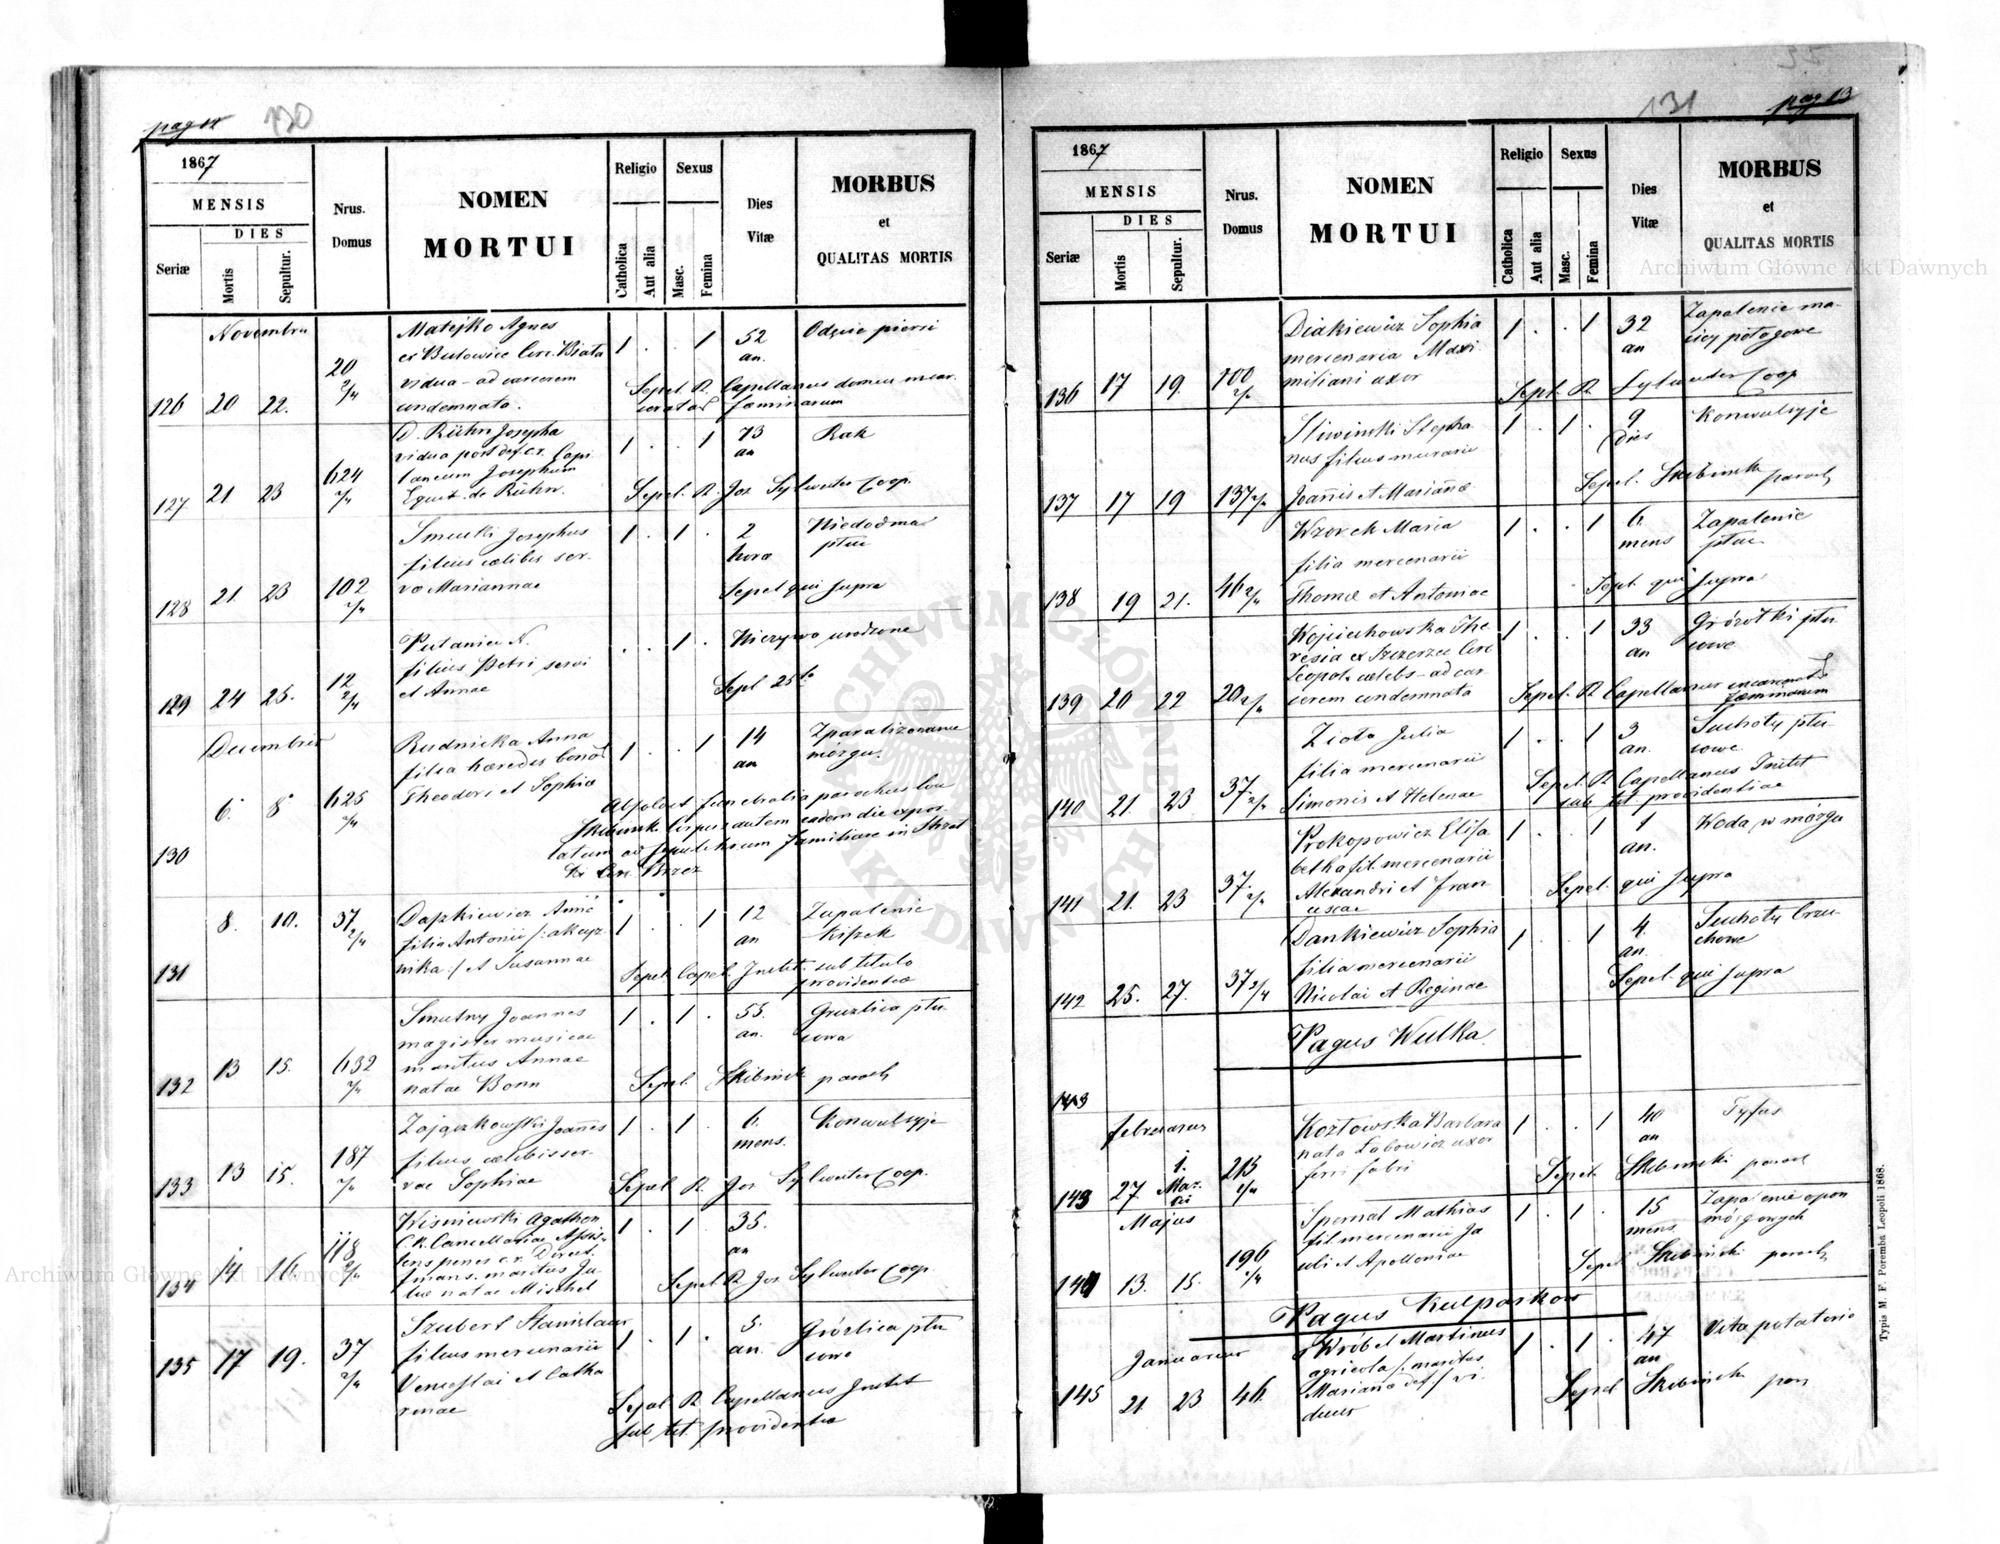 pag 12
130
1867
MENSIS
DIES
Seriæ
Mortis
Sepultur.
Nrus.
Domus
NOMEN
MORTUI
Religio
Catholica
Aut alia
Sexus
Masc.
Femina
Dies
Vitæ
MORBUS
et
QUALITAS MORTIS
Novembris
126 20 22. 20 2/4
Matejko Agnes
ex Bulowice Circ. Biała
vidua - ad carcerem
condemnata.
1 . . 1 52 an.
Sepel. R. Capellanus domus incar-
ceratar. foeminarum
127 21 23 624 2/4
D. Rühn Josepha
vidua post def. c.r. Capi
taneum Josephum
Equit. de Rühn.
1 . . 1 73 an Rak
Sepel. R. Jos Sylwester Coop.
128 21 23 102 2/4
Josephus
filius coelibis ser-
vae Mariannae
1 . 1 . 2 hora Niedodma
płuc
Sepel qui supra
129 24 25. 12 2/4
N.
filius Petri servi
et Annae
. . 1 . Nieżywo urodzone
Sepl 25to
Decembris
130 6. 8 625 2/4
Rudnicka Anna
filia haeredis bonor
Theodori et Sophia
1 . . 1 14 an Zparaliżowanie
mózgu.
Absolvit funebralia parochus loci
Skibinski Corpus autem eadem die expor-
tatum ad sepulchrum familiare in
Circ. Brzez
131 8. 10. 37 2/4
Daszkiewicz Anna
filia Antonii
nika ./ et Susannae
1 . . 1 12 an Zapalenie
kiszek
Sepel. Capel. Instit. sub titulo
providentiae
132 13 15. 632 2/4
Smutny Joannes
magister musicae
maritus Annae
natae Bonn
1 . 1 . 55. an. Gruzlica płu-
cowa
Sepel. Skibinski paroch
133 13 15. 187 2/4
Zajączkowski Joannes
filius coelibis ser-
vae Sophiae
1 . 1 . 6. mens. Konwulsyje
Sepel R. Jos Sylwester Coop.
134 14 16. 118 2/4
Wisniewski Agathon
C.R. Cancellariae Assis-
tens penes c.r. Direct.
finans. maritus Ju-
liae natae Mischel
1 . 1 . 35. an
Sepel R. Jos Sylwester Coop.
135 17 19. 37 2/4
Szubert Stanislaus
filius mercenarii
Venceslai et Catha
rinae
1 . 1 . 5. an. Gruzlica płu
cowa
Sepel R. Capellanus Instit
sub tit. providentiae
131
pag 13
1867
MENSIS
DIES
Seriæ
Mortis
Sepultur.
Nrus.
Domus
NOMEN
MORTUI
Religio
Catholica
Aut alia
Sexus
Masc.
Femina
Dies
Vitæ
MORBUS
et
QUALITAS MORTIS
136 17 19. 700 2/4
Diakiewicz Sophia
mercenaria Maxi
miliani uxor
1 . . 1 32 an Zapalenie ma-
cicy połogowe
Sepl. R. Sylwester Coop
137 17 19 137 2/4
Sliwinski Stepha
nus filius murarii
Joannis et Mariannæ
1 . 1 . 9 dies Konwulsyje
Sepel. Skibinski paroch
138 19 21. 46 2/4
Wzorek Maria
filia mercenarii
Thomæ et Antoniae
1 . . 1 6. mens Zapalenie
płuc
Sepl. qui supra
139 20 22 20 2/4
Wojciechowska The
resia ex Szczerzec Circ
Leopol. coelebs - ad car-
cerem condemnata
1 . . 1 33 an Gruzołki płu
cowe
Sepel. R. Capellanus incarcerat.
foeminarum
140 21. 23 37. 2/4
Zioło Julia
filia mercenarii
Simonis et Helenae
1 . . 1 3 an. Suchoty płu-
cowe
Sepel. R. Capellanus Instit
sub tit providentiae
141 21. 23 37. 2/4
Prokopowicz Elisa
betha fil. mercenarii
Alexandri et Fran-
ciscae
1 . . 1 1 an. Woda w mózgu
Sepel. qui supra
142 25. 27. 37 2/4
Dankiewicz Sophia
filia mercenarii
Nicolai et Reginae
1 . . 1 4. an. Suchoty brzu-
chowe
Sepel. qui supra
Pagus Wulka
143
februarius
143 27 1. Mar-
tii 215 2/4
Kozłowska Barbara
nata Labowicz uxor
ferri fabri
1 . . 1 40 an Tyfus
Sepel. Skibinski paroch
Majus
144 13. 15. 196 2/4
Spernal Mathias
fil mercenarii Ja
cobi et Apolloniae
1 . 1 . 15 mens Zapalenie opon
mózgowych
Sepel. Skibinski paroch
Pagus Kulparkow
Januarius
145 21 23 46.
Wróbel Martinus
agricola /: maritus
Mariana def :/ vi-
duus
1 . 1 . 47 an Vita potatorio
Sepel Skibinski par
Typis M. F. Poremba Leopoli 1868.
Archiwum Główne Akt Dawnych
Archiwum Główne Akt Dawnych
ARCHIWUM GŁÓWNE AKT DAWNYCH